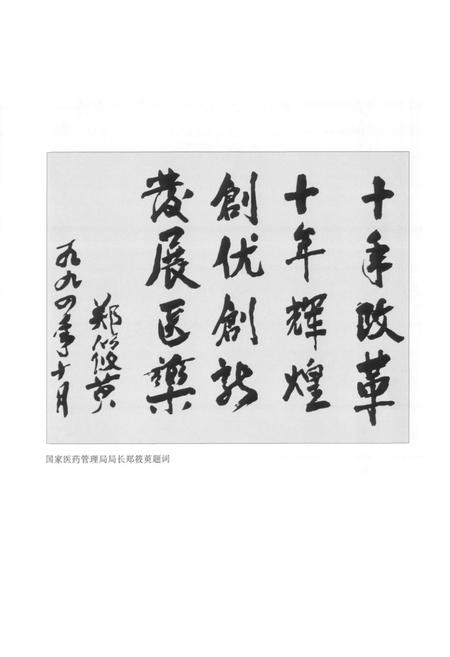 十年改革
十年辉煌
創优創新
发展医藥
郑筱萸
一九九四年十月
国家医药管理局局长郑筱萸题词